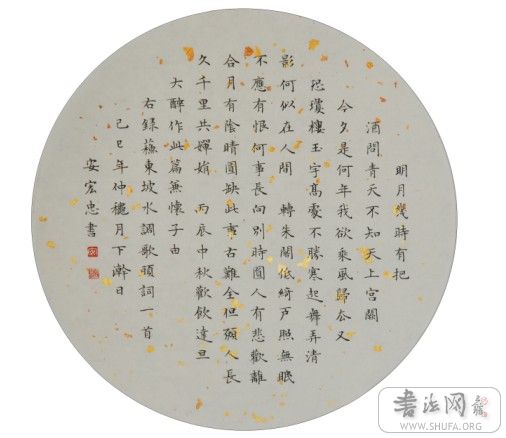 明月幾時有把
酒問青天不知天上宮闕
今夕是何年我欲乘風歸去又
恐瓊樓玉宇高處不勝寒起舞弄清
影何似在人間 轉朱閣低綺戶照無眠
不應有恨何事長向別時圓人有悲歡離
合月有陰晴圓缺此事古難全但願人長
久千里共嬋娟 丙辰中秋歡飲達旦
大醉作此篇兼懷子由
右錄蘇東坡水調歌頭詞一首
己巳年仲穐月下澣日
安宏忠書
书法网
WWW.SHUFA.ORG